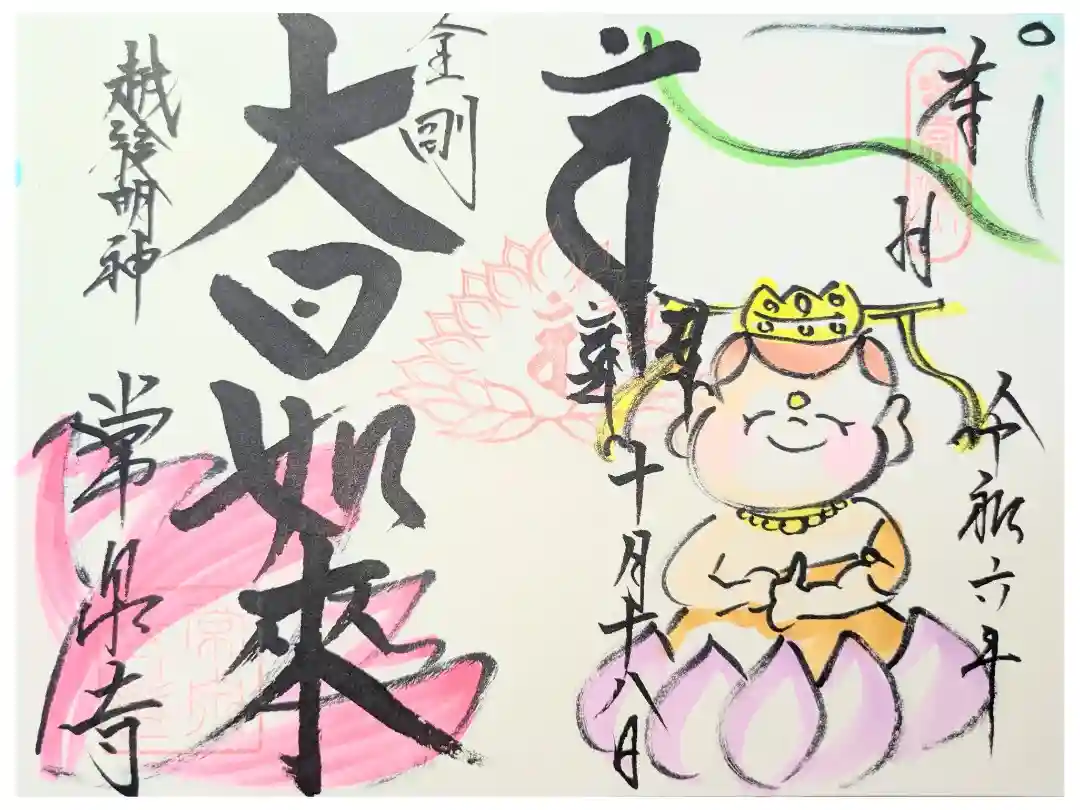 奉拝
令和六年
十月十八日
金剛
大日如來
明神
常泉寺